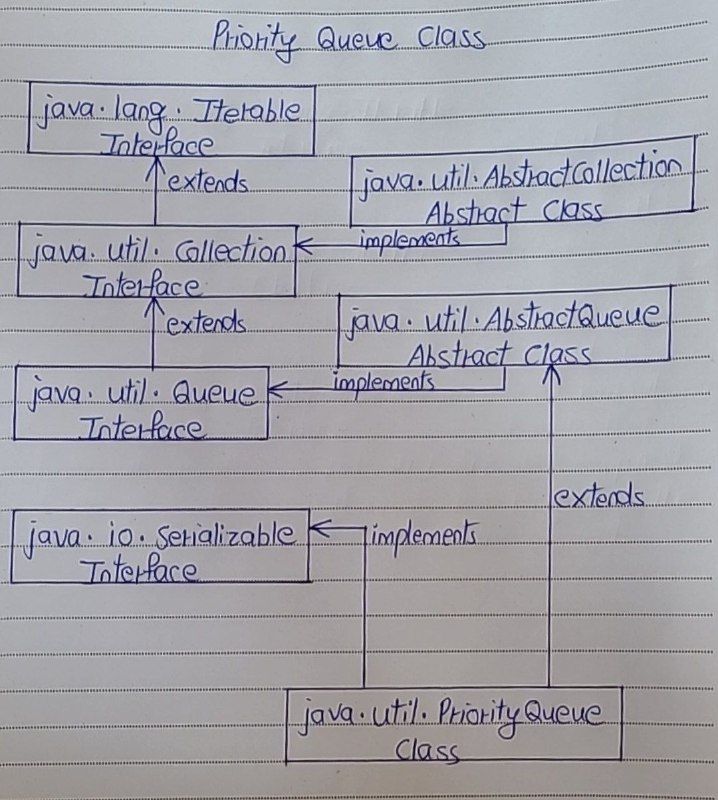 Priority Queue Class
java.lang.Iterable
Interface
extends
java.util.AbstractCollection
Abstract Class
java.util.Collection
Interface
implements
extends
java.util.AbstractQueue
Abstract Class
java.util.Queue
Interface
implements
extends
java.io.Serializable
Interface
implements
java.util.PriorityQueue
Class